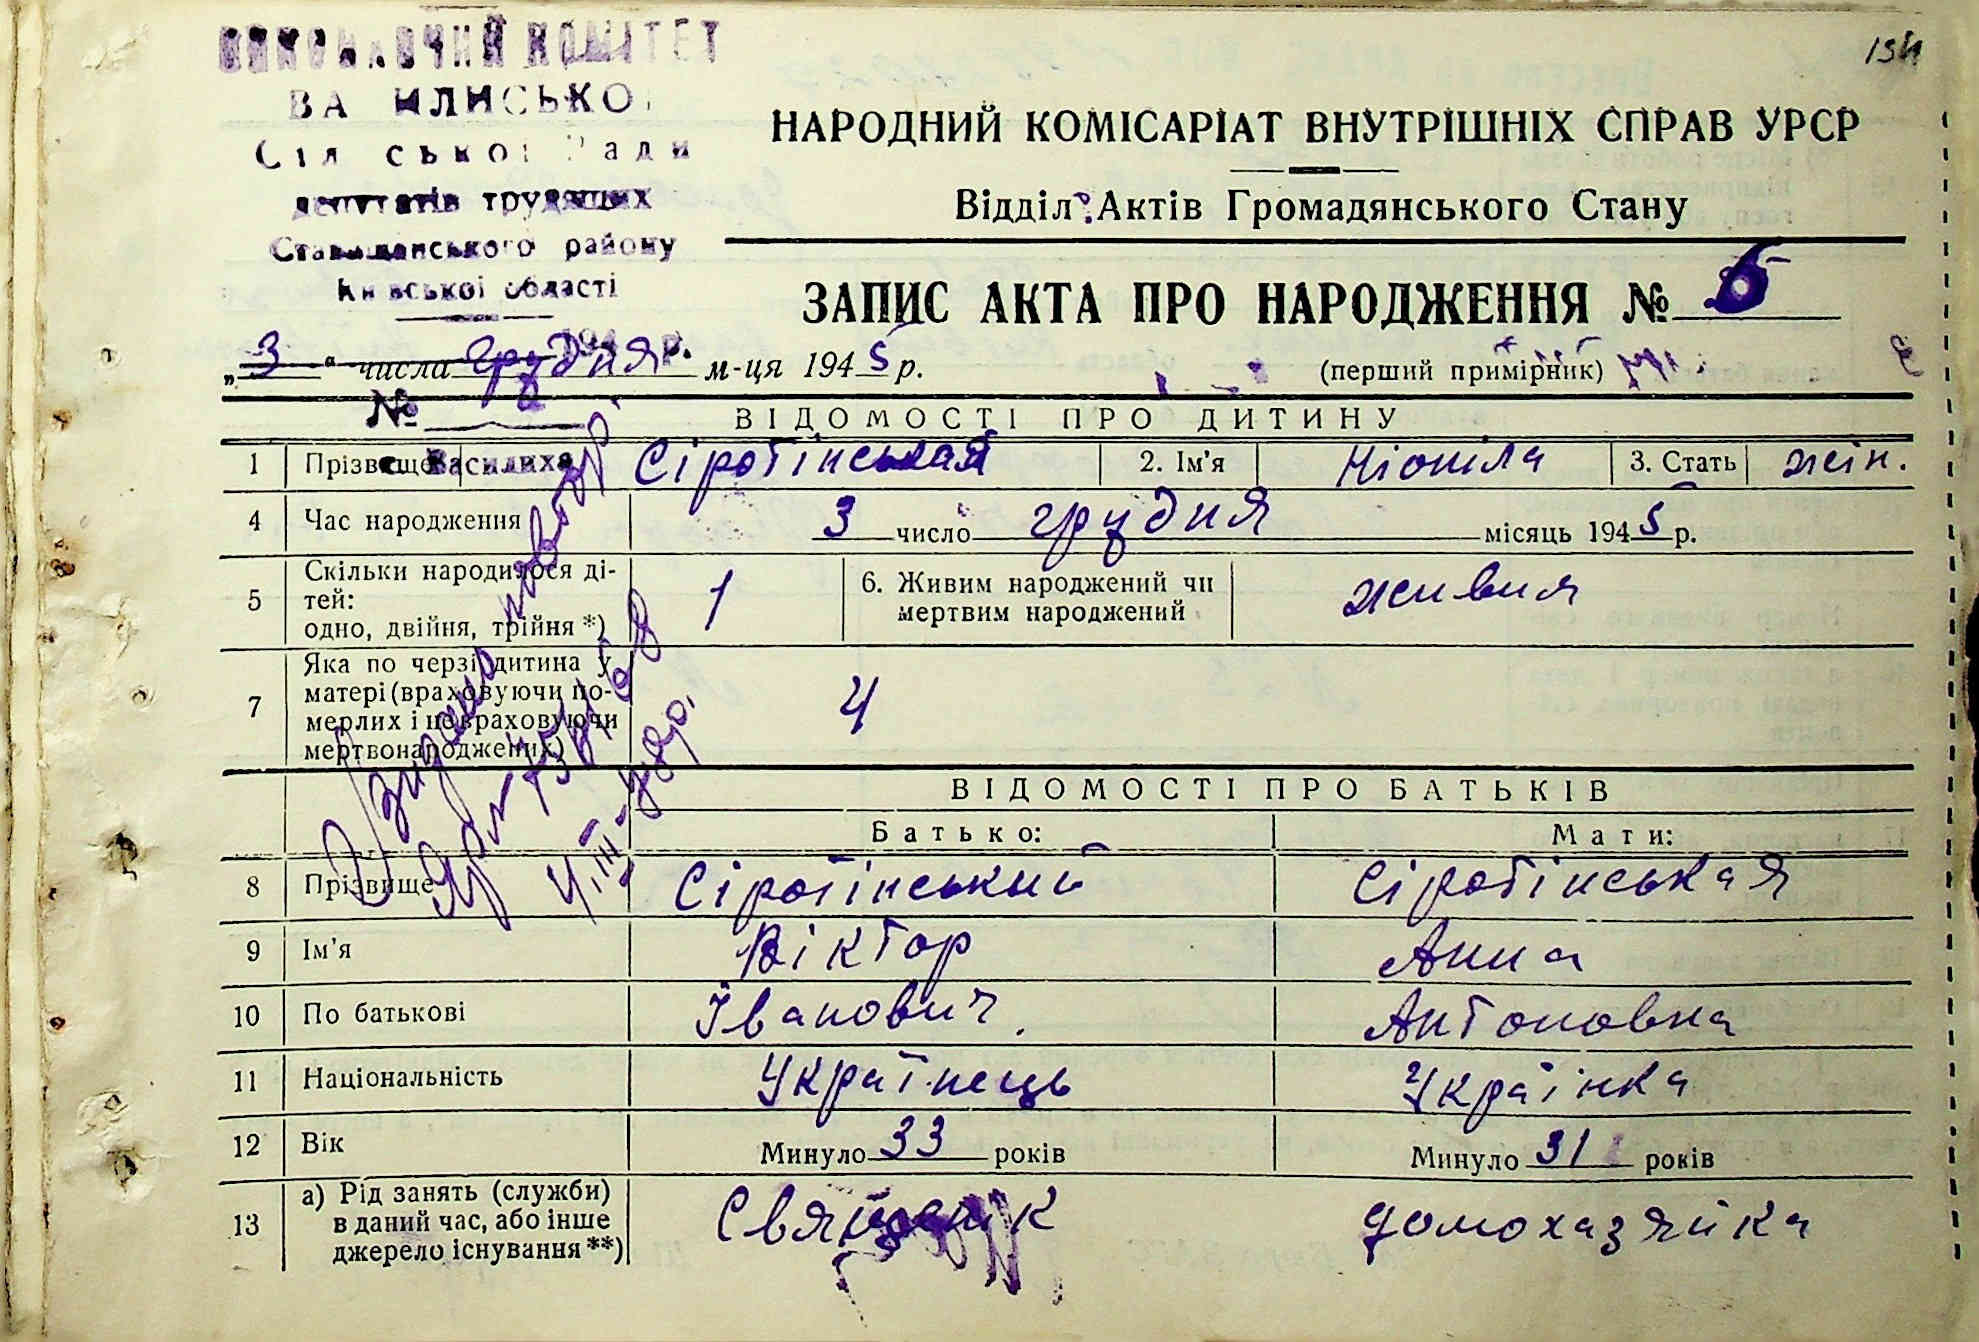 154
ВИКОНАВЧИЙ КОМІТЕТ
НАРОДНИЙ КОМІСАРІАТ ВНУТРІШНІХ СПРАВ УРСР
депутатів трудящих
Відділ Актів Громадянського Стану
Ставищанського району
Київської області
ЗАПИС АКТА ПРО НАРОДЖЕННЯ №
194 р.
„3“ числа грудня м-ця 1945 р.
(перший примірник)
№
ВІДОМОСТІ ПРО ДИТИНУ
с Василиха
1 Прізвище Сіротінськая 2. Ім'я 3. Стать жін.
4 Час народження 3 число грудня місяць 1945 р.
5 Скільки народилося ді-
тей:
одно, двійня, трійня *) 1
6. Живим народжений чи
мертвим народжений живия
7 Яка по черзі дитина у
матері (враховуючи по-
мерлих і не враховуючи
мертвонароджених) 4
Видано повтор.
ВІДОМОСТІ ПРО БАТЬКІВ
Батько: Мати:
8 Прізвище Сіротінський Сіротінськая
9 Ім'я Віктор Анна
10 По батькові Іванович. Антоновна
11 Національність Українець Українка
12 Вік Минуло 33 років Минуло 31 років
13 а) Рід занять (служби)
в даний час, або інше
джерело існування **) Священик домохазяйка